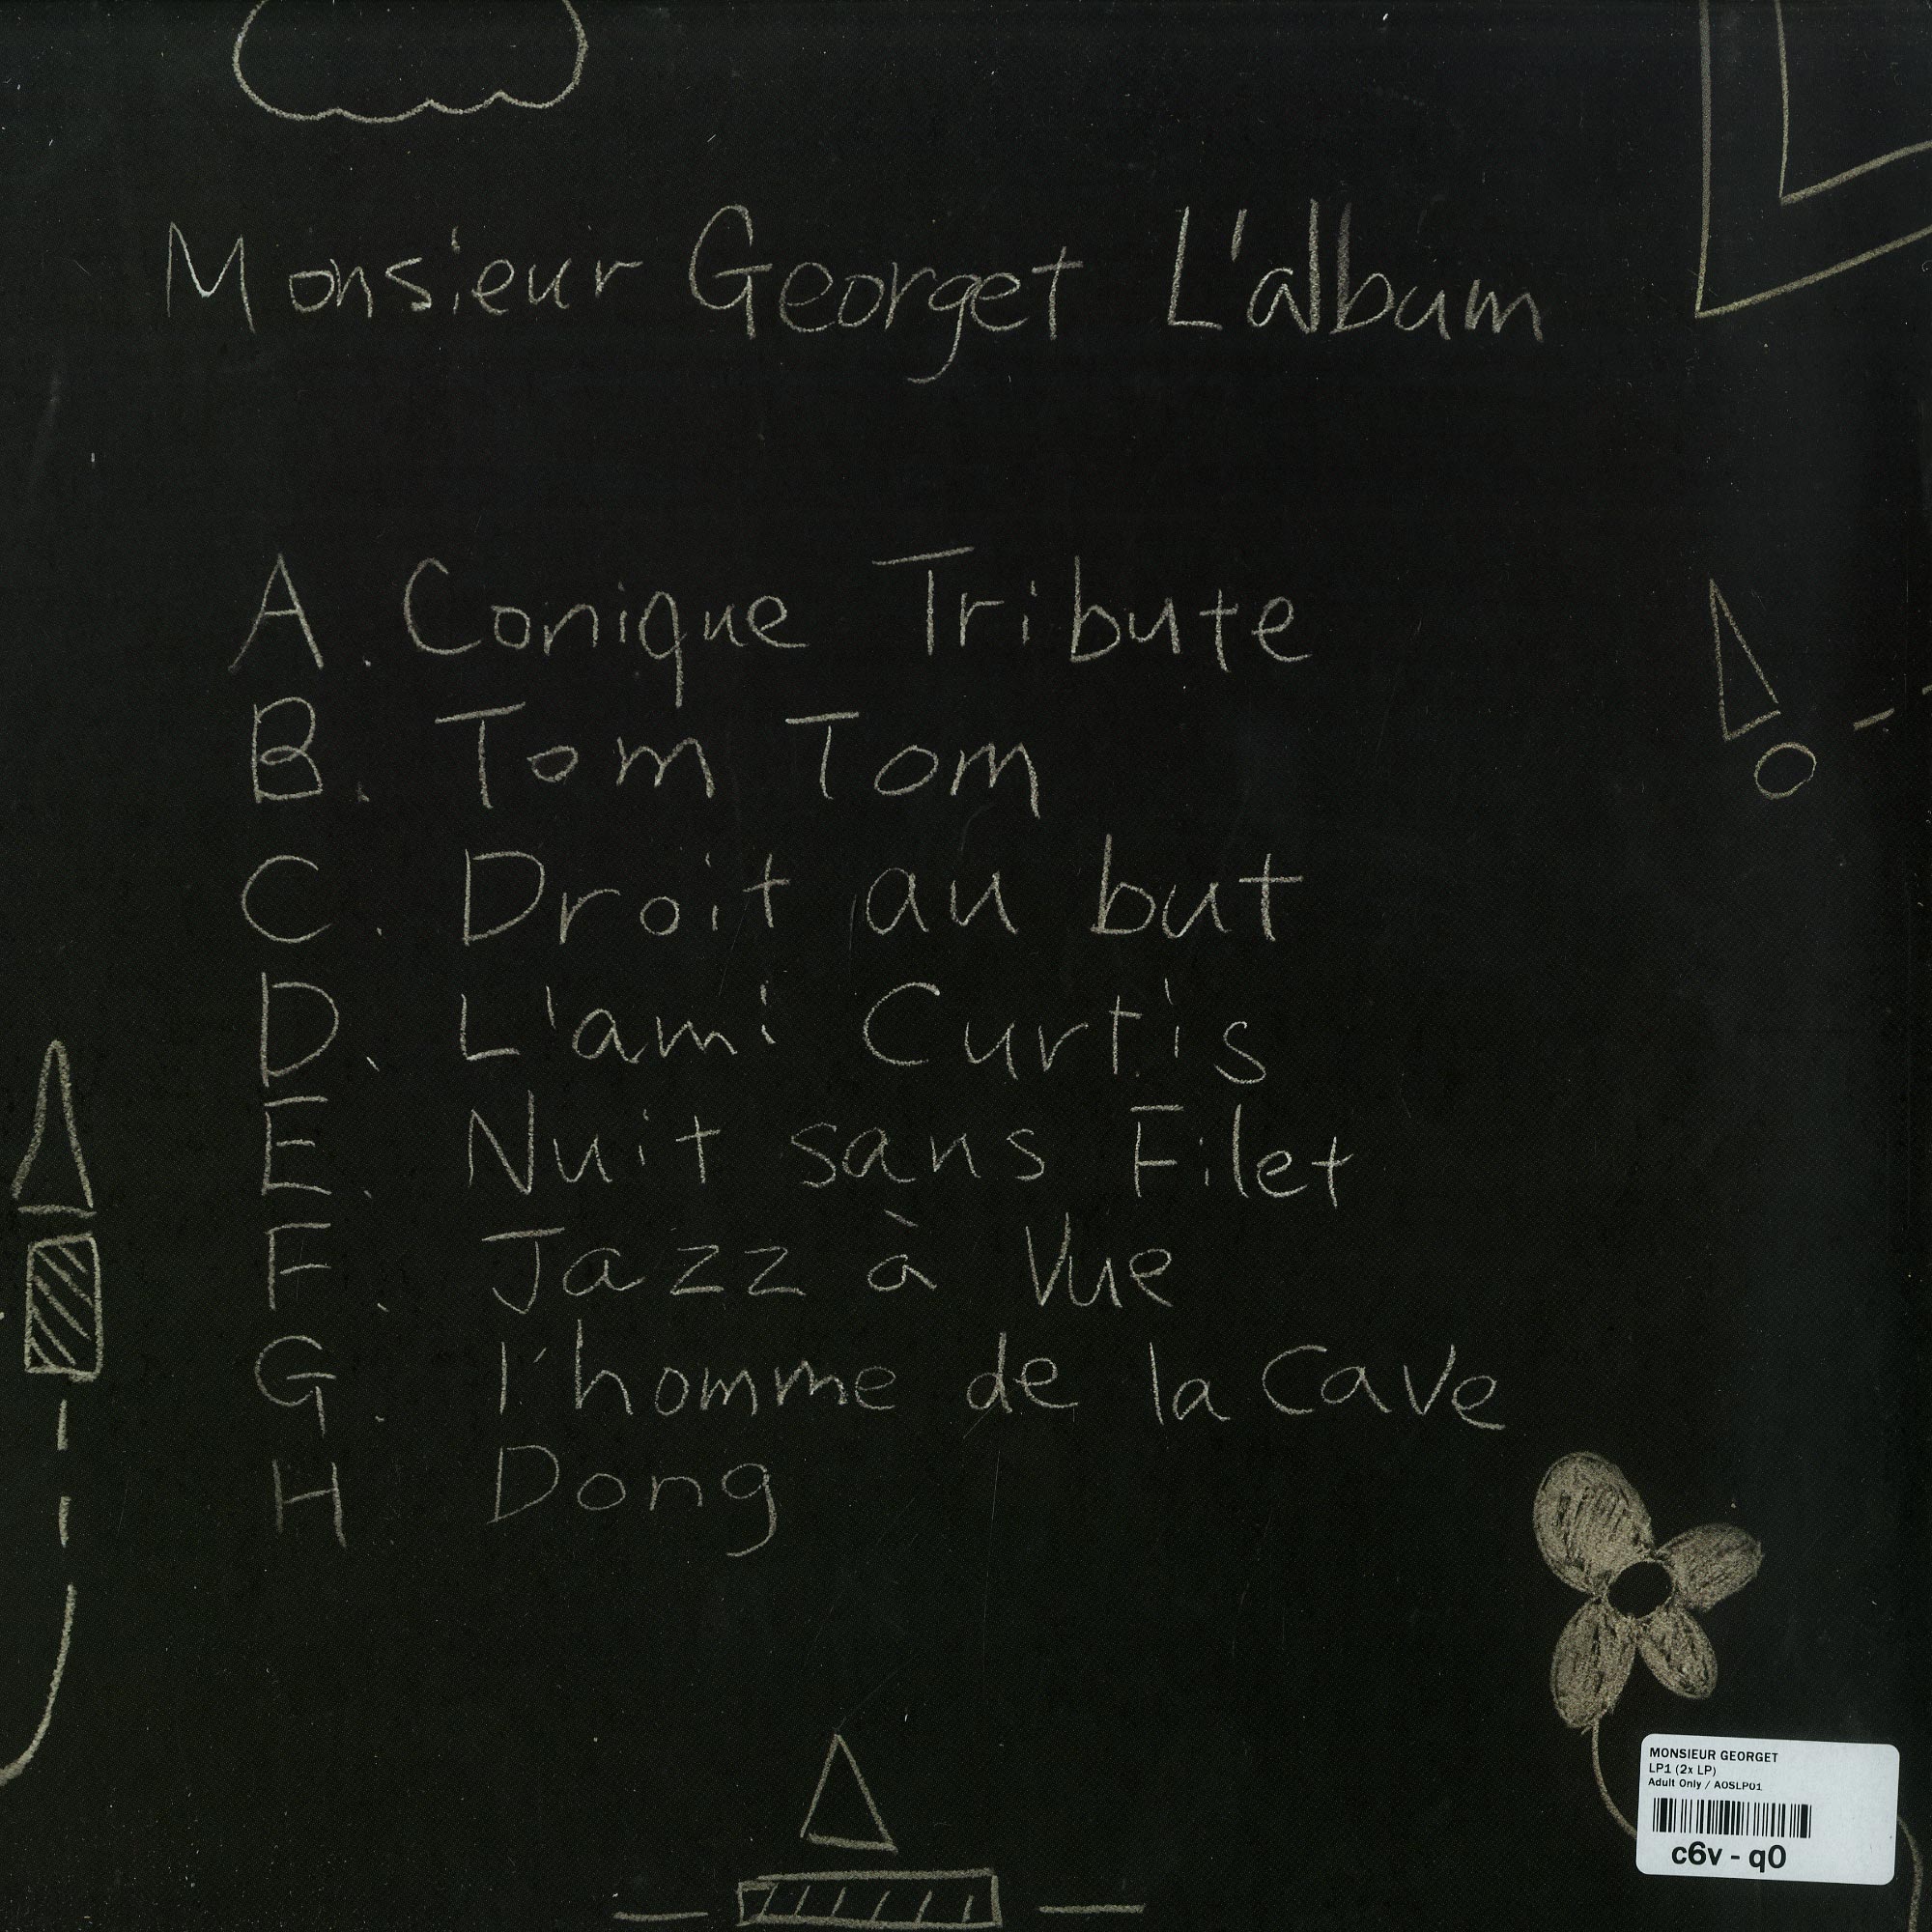 Monsieur Georget L'album
A. Conique Tribute
B. Tom Tom
C. Droit au but
D. L'ami Curtis
E. Nuit sans Filet
F. Jazz à Vue
G. l'homme de la Cave
H Dong
MONSIEUR GEORGET
LP1 (2x LP)
Adult Only / AOSLP01
c6v - q0